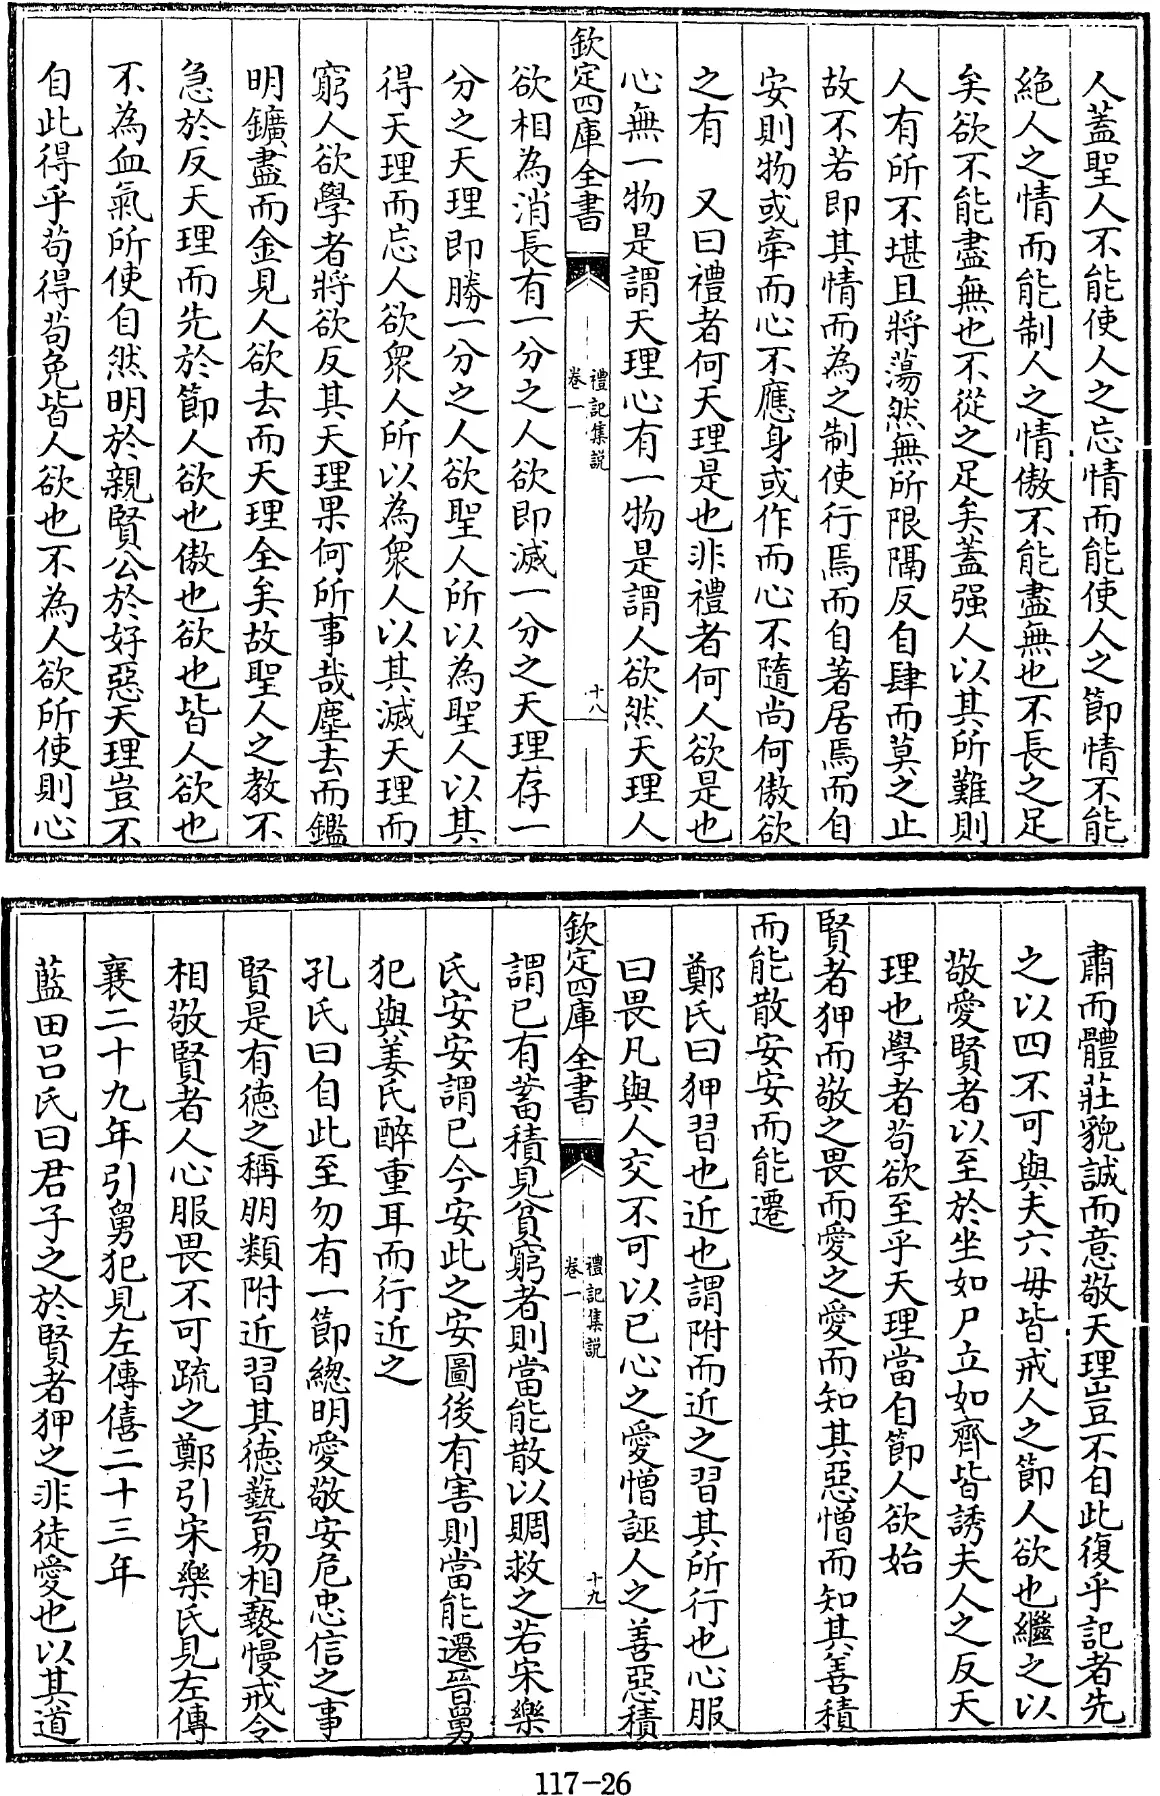 人蓋聖人不能使人之忘情而能使人之節情不能
絶人之情而能制人之情傲不能盡無也不長之足
矣欲不能盡無也不從之足矣蓋强人以其所難則
人有所不堪且將蕩然無所限隔反自肆而莫之止
故不若即其情而為之制使行焉而自著居焉而自
安則物或牽而心不應身或作而心不隨尚何傲欲
之有　又曰禮者何天理是也非禮者何人欲是也
心無一物是謂天理心有一物是謂人欲然天理人
欽定四庫全書
禮記集說
卷一
十八
欲相為消長有一分之人欲即滅一分之天理存一
分之天理即勝一分之人欲聖人所以為聖人以其
得天理而忘人欲衆人所以為衆人以其滅天理而
窮人欲學者將欲反其天理果何所事哉塵去而鑑
明鑛盡而金見人欲去而天理全矣故聖人之教不
急於反天理而先於節人欲也傲也欲也皆人欲也
不為血氣所使自然明於親賢公於好惡天理豈不
自此得乎苟得苟免皆人欲也不為人欲所使則心
肅而體莊貌誠而意敬天理豈不自此復乎記者先
之以四不可與夫六毋皆戒人之節人欲也繼之以
敬愛賢者以至於坐如尸立如齊皆誘夫人之反天
理也學者苟欲至乎天理當自節人欲始
賢者狎而敬之畏而愛之愛而知其惡憎而知其善積
而能散安安而能遷
鄭氏曰狎習也近也謂附而近之習其所行也心服
曰畏凡與人交不可以已心之愛憎誣人之善惡積
欽定四庫全書
禮記集說
卷一
十九
謂已有蓄積見貧窮者則當能散以賙救之若宋樂
氏安安謂已今安此之安圖後有害則當能遷晉舅
犯與姜氏醉重耳而行近之
孔氏曰自此至勿有一節總明愛敬安危忠信之事
賢是有徳之稱朋類附近習其徳藝易相䙝慢戒令
相敬賢者人心服畏不可疏之鄭引宋樂氏見左傳
襄二十九年引舅犯見左傳僖二十三年
藍田吕氏曰君子之於賢者狎之非徒愛也以其道
117-26